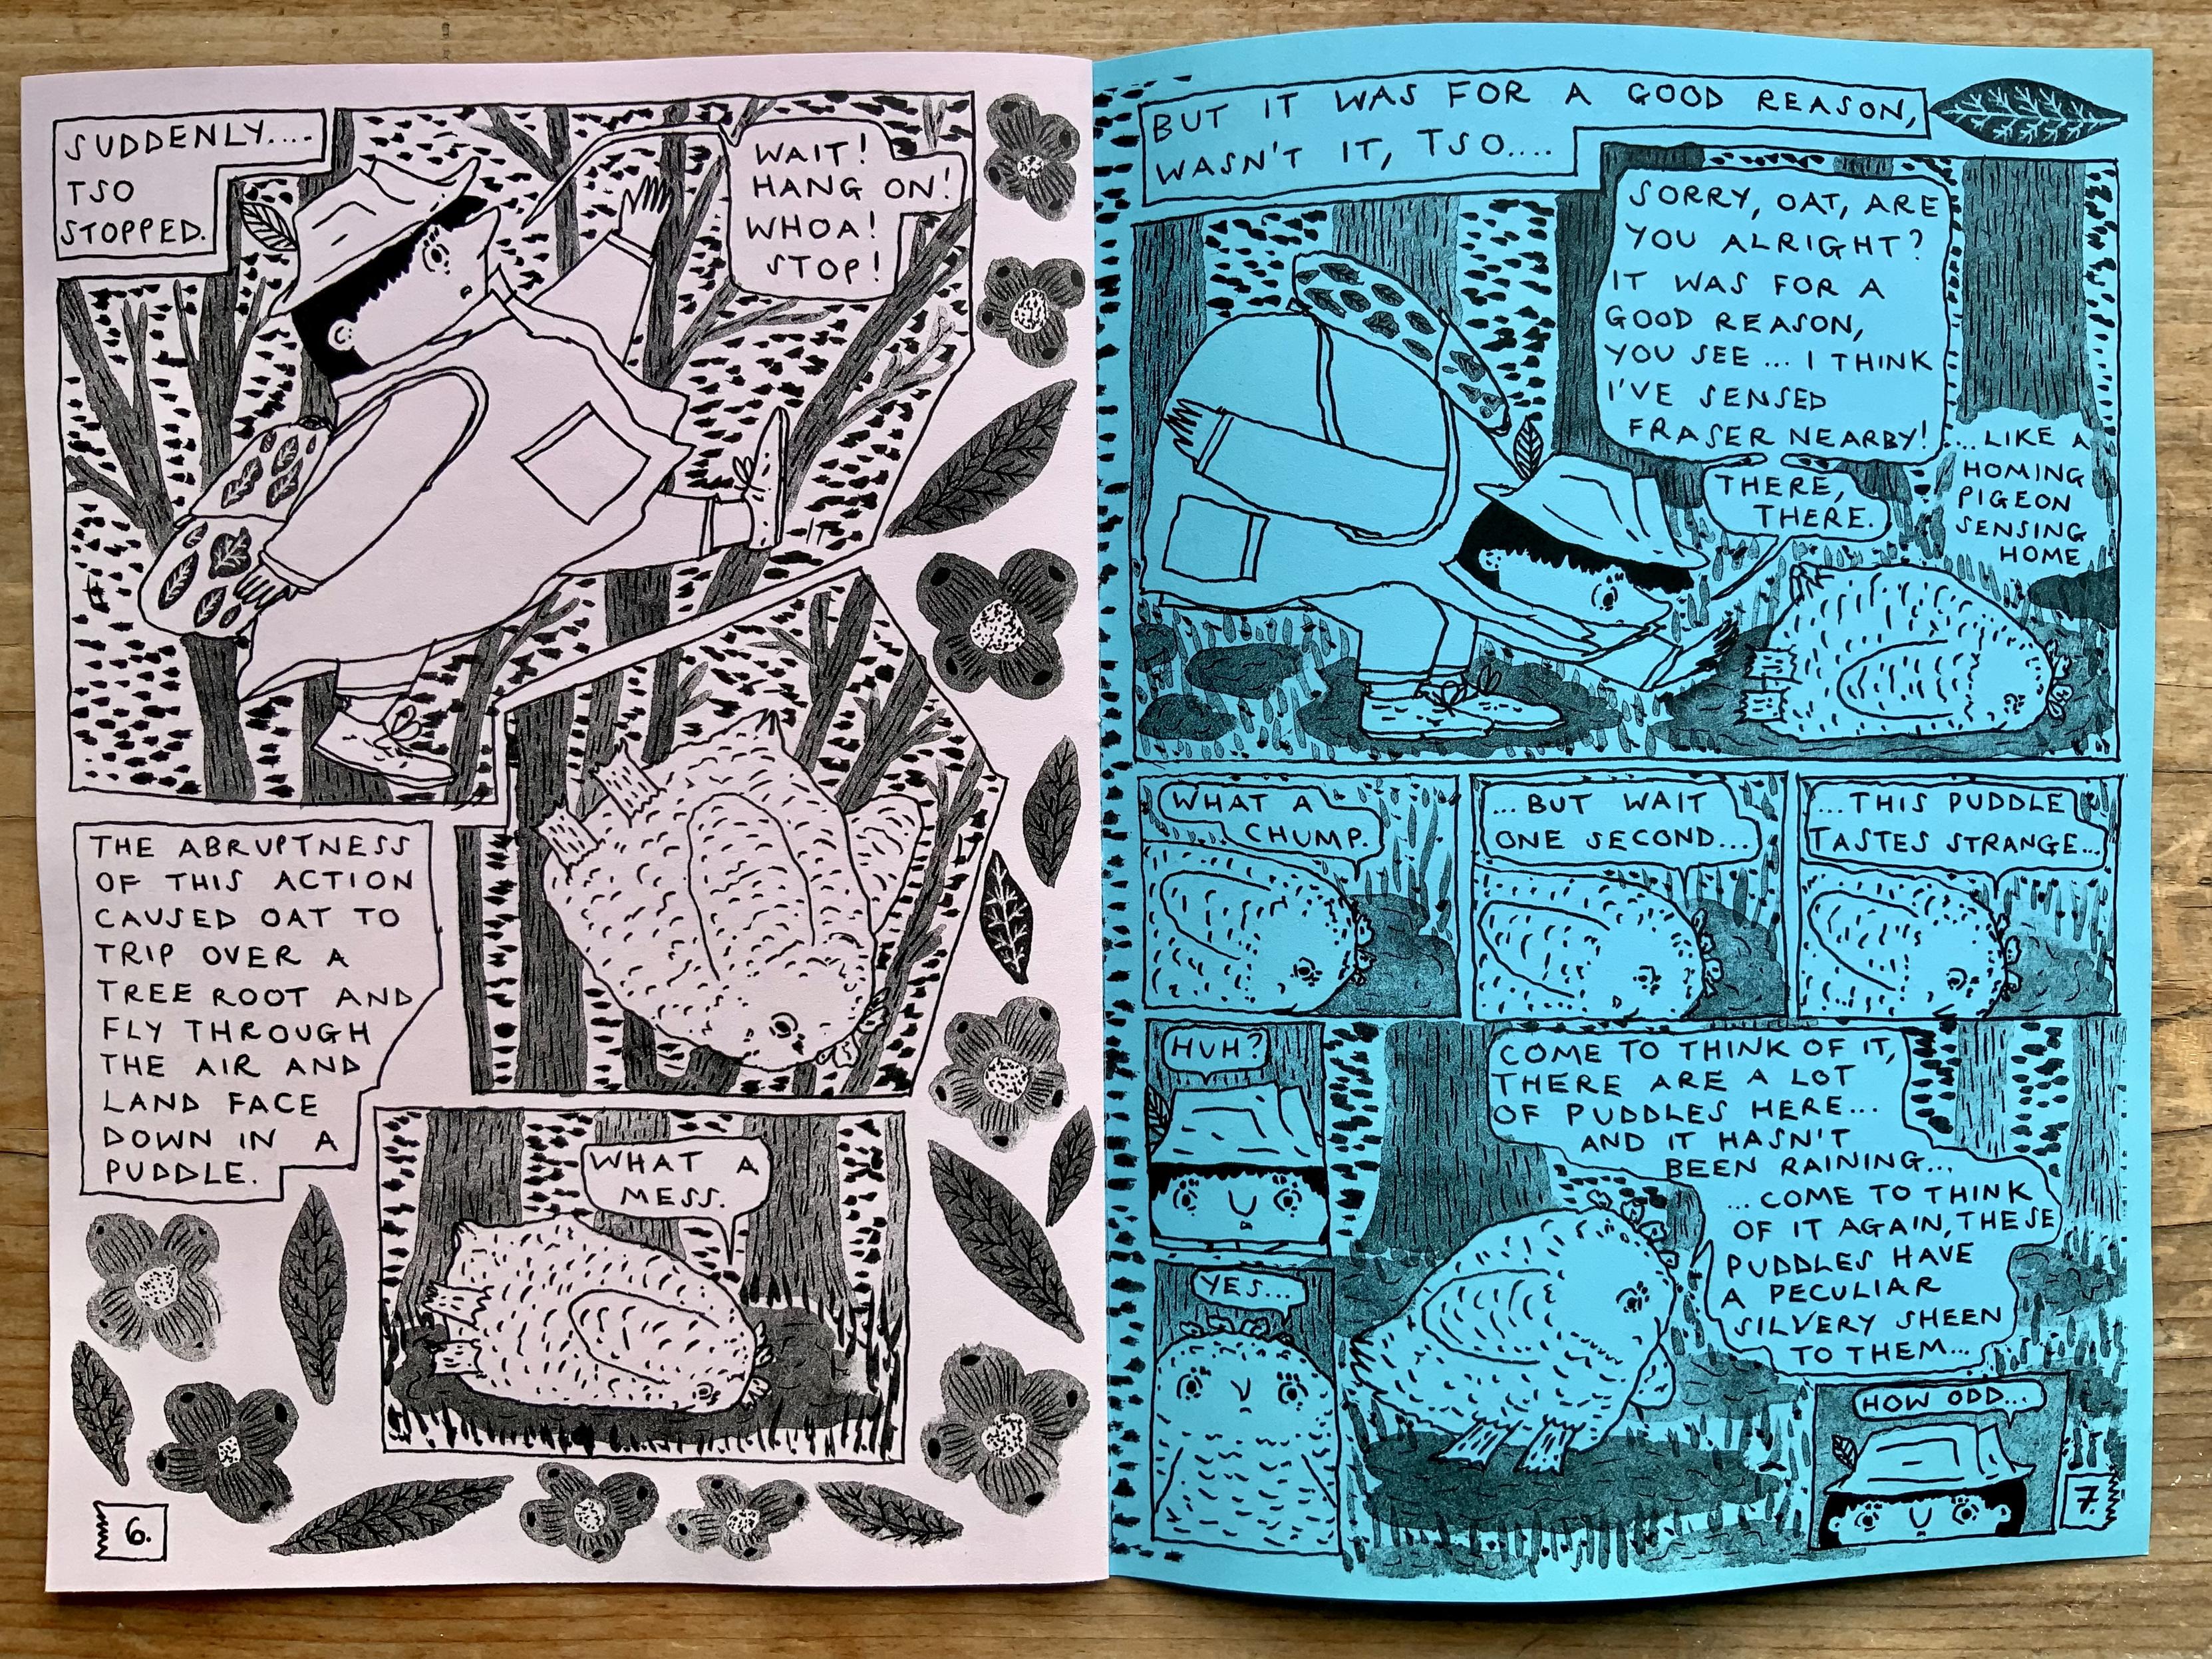 SUDDENLY....
TSO
STOPPED.
WAIT!
HANG ON!
WHOA!
STOP!
THE ABRUPTNESS
OF THIS ACTION
CAUSED OAT TO
TRIP OVER A
TREE ROOT AND
FLY THROUGH
THE AIR AND
LAND FACE
DOWN IN A
PUDDLE.
WHAT A
MESS.
6.
BUT IT WAS FOR A GOOD REASON,
WASN'T IT, TSO....
SORRY, OAT, ARE
YOU ALRIGHT?
IT WAS FOR A
GOOD REASON,
YOU SEE... I THINK
I'VE SENSED
FRASER NEARBY!
...LIKE A
HOMING
PIGEON
SENSING
HOME
THERE,
THERE.
WHAT A
CHUMP.
...BUT WAIT
ONE SECOND...
...THIS PUDDLE
TASTES STRANGE...
HUH?
COME TO THINK OF IT,
THERE ARE A LOT
OF PUDDLES HERE...
AND IT HASN'T
BEEN RAINING...
...COME TO THINK
OF IT AGAIN, THESE
PUDDLES HAVE
A PECULIAR
SILVERY SHEEN
TO THEM...
YES...
HOW ODD...
7.